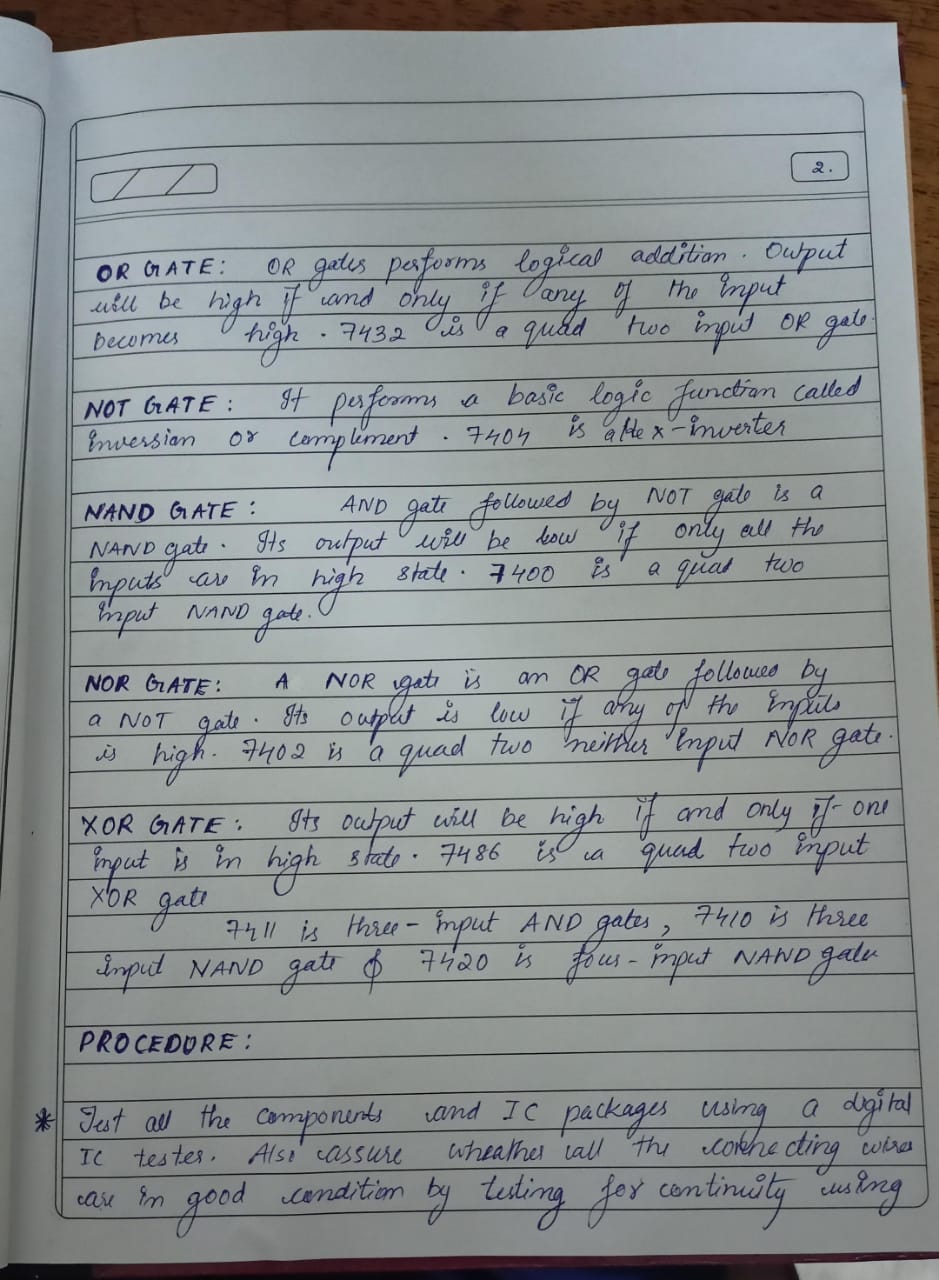 2.
OR GATE: OR gates performs logical addition. Output
will be high if and only if any of the input
becomes high. 7432 is a quad two input OR gate.
NOT GATE: It performs a basic logic function called
inverssian or complement. 7404 is a Hex-inverter
NAND GATE: AND gate followed by NOT gate is a
NAND gate. Its output will be low if only all the
inputs are in high state. 7400 is a quad two
input NAND gate.
NOR GATE: A NOR gate is an OR gate followed by
a NOT gate. Its output is low if any of the inputs
is high. 7402 is a quad two neither input NOR gate.
XOR GATE: Its output will be high if and only if one
input is in high state. 7486 is a quad two input
XOR gate
7411 is three-input AND gates, 7410 is three
input NAND gate & 7420 is four-input NAND gate
PROCEDURE:
* Test all the components and IC packages using a digital
IC tester. Also assure wheather all the connecting wires
are in good condition by testing for continuity using